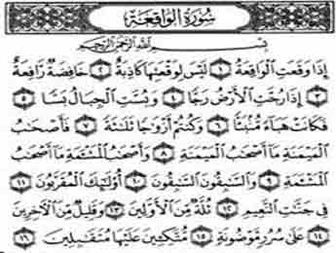 سُورَةُ الوَاقِعَةِ
بِسْمِ اللَّهِ الرَّحْمَٰنِ الرَّحِيمِ
إِذَا وَقَعَتِ الْوَاقِعَةُ ١ لَيْسَ لِوَقْعَتِهَا كَاذِبَةٌ ٢ خَافِضَةٌ رَّافِعَةٌ
٣ إِذَا رُجَّتِ الْأَرْضُ رَجًّا ٤ وَبُسَّتِ الْجِبَالُ بَسًّا ٥
فَكَانَتْ هَبَاءً مُّنبَثًّا ٦ وَكُنتُمْ أَزْوَاجًا ثَلَاثَةً ٧ فَأَصْحَابُ
الْمَيْمَنَةِ مَا أَصْحَابُ الْمَيْمَنَةِ ٨ وَأَصْحَابُ الْمَشْأَمَةِ مَا أَصْحَابُ
الْمَشْأَمَةِ ٩ وَالسَّابِقُونَ السَّابِقُونَ ١٠ أُولَٰئِكَ الْمُقَرَّبُونَ ١١
فِي جَنَّاتِ النَّعِيمِ ١٢ ثُلَّةٌ مِّنَ الْأَوَّلِينَ ١٣ وَقَلِيلٌ مِّنَ الْآخِرِينَ
١٤ عَلَىٰ سُرُرٍ مَّوْضُونَةٍ ١٥ مُّتَّكِئِينَ عَلَيْهَا مُتَقَابِلِينَ ١٦